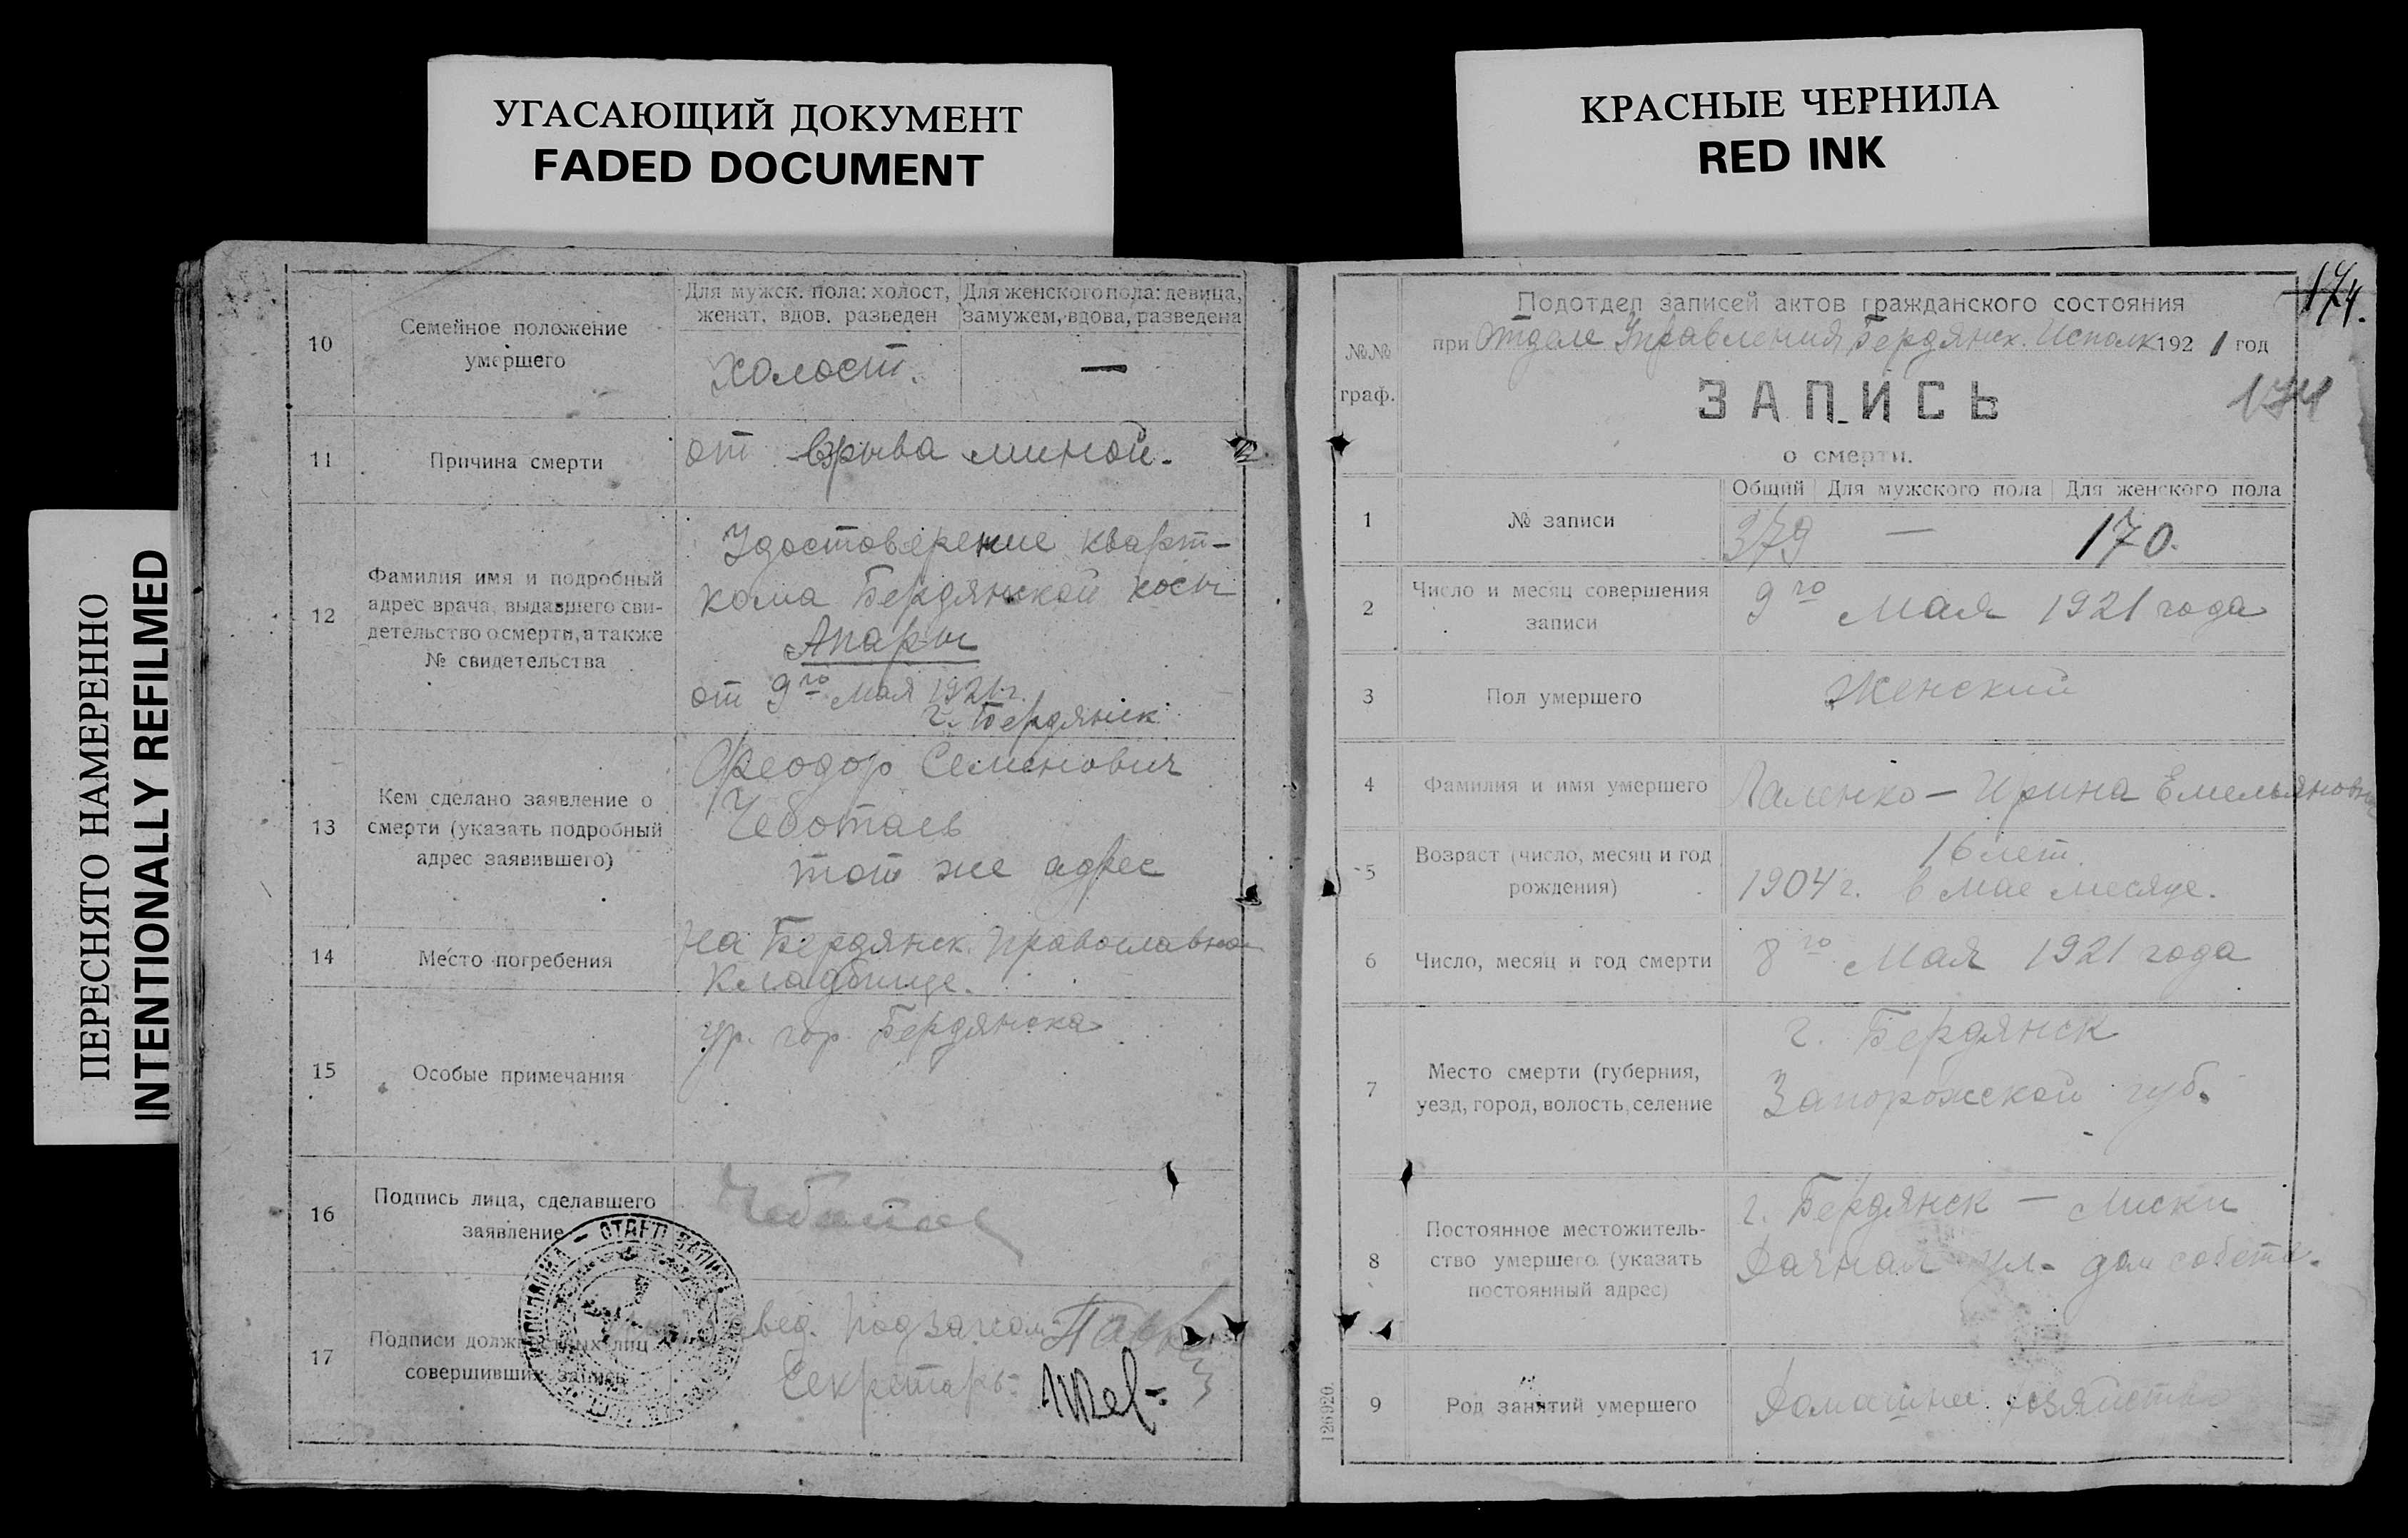 УГАСАЮЩИЙ ДОКУМЕНТ
FADED DOCUMENT
КРАСНЫЕ ЧЕРНИЛА
RED INK
ПЕРЕСНЯТО НАМЕРЕННО
INTENTIONALLY REFILMED
10
Семейное положение
умершего
Для мужск. пола: холост,
женат, вдов. разведен
Для женского пола: девица,
замужем, вдова, разведена
холост.
—
11
Причина смерти
от взрыва миной.
12
Фамилия имя и подробный
адрес врача, выдавшего сви-
детельство о смерти, а также
№ свидетельства
Удостоверение кварт-
кома Бердянской косы
Апары
от 9го мая 1921 г.
г. Бердянск
13
Кем сделано заявление о
смерти (указать подробный
адрес заявившего)
Феодор Семенович
Чеботаев
тот же адрес
14
Место погребения
На Бердянск. Православно
кладбище.
15
Особые примечания
ур. гор. Бердянска
16
Подпись лица, сделавшего
заявление
Чеботаев
17
Подписи должностных лиц
совершивших запись
Секретарь:
174.
Подотдел записей актов гражданского состояния
№№
граф.
при Отделе Управления Бердянск. Исполк 1921 год
ЗАПИСЬ
174
о смерти.
1
№ записи
Общий
Для мужского пола
Для женского пола
379
—
170.
2
Число и месяц совершения
записи
9го Мая 1921 года
3
Пол умершего
Женский
4
Фамилия и имя умершего
Паленко – Ирина Емельяновна
5
Возраст (число, месяц и год
рождения)
16 лет.
1904 г. в мае месяце.
6
Число, месяц и год смерти
8го Мая 1921 года
7
Место смерти (губерния,
уезд, город, волость, селение
г. Бердянск
Запорожской губ.
8
Постоянное местожитель-
ство умершего (указать
постоянный адрес)
г. Бердянск – Лиски
Дачная ул. дом собств.
9
Род занятий умершего
Домашнее хозяйство
126920